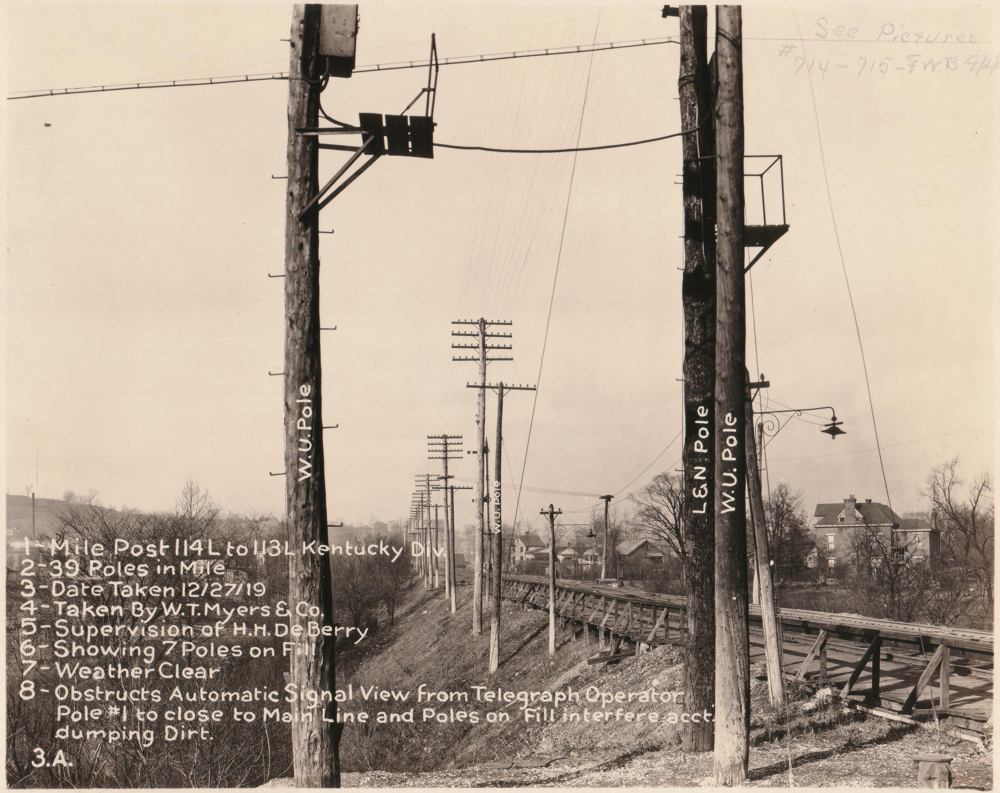 See Pictures
#714-715-FWB
W.U. Pole
L&N Pole
W.U. Pole
W.U. Pole
1- Mile Post 114L to 113L Kentucky Div.
2-39 Poles in Mile
3- Date Taken 12/27/19
4- Taken By W.T. Myers & Co.
5- Supervision of H.H. De Berry
6- Showing 7 Poles on Fill
7- Weather Clear
8- Obstructs Automatic Signal View from Telegraph Operator
Pole #1 to close to Main Line and Poles on Fill interfere acct.
dumping Dirt.
3.A.